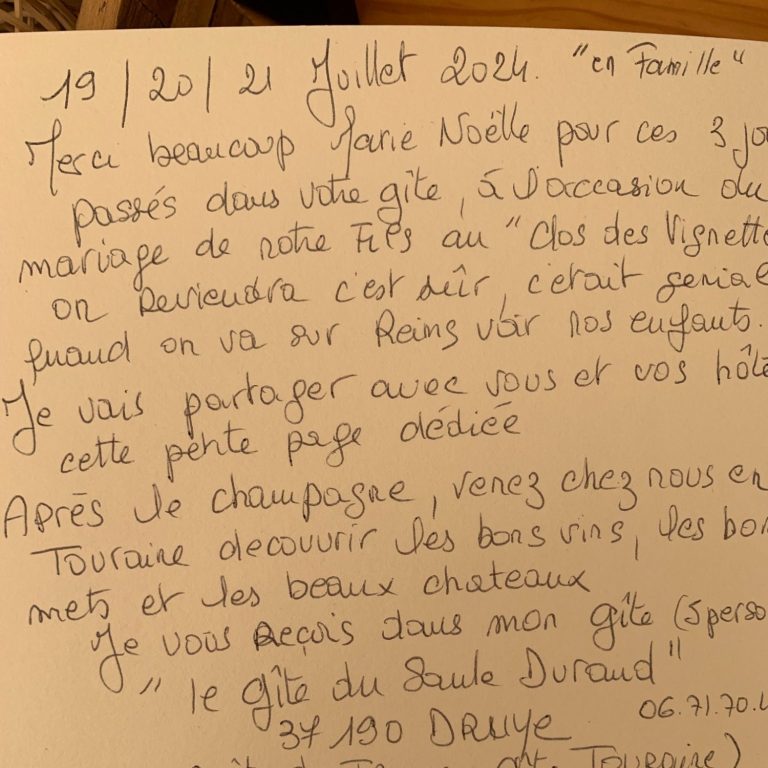 19 / 20 / 21 Juillet 2024. "en Famille"
Merci beaucoup Marie Noëlle pour ces 3 jo
passés dans votre gîte, à l'occasion du
mariage de notre Fils au "Clos des Vignette
on Reviendra c'est sûr, c'était genial
quand on va sur Reims voir nos enfants.
Je vais partager avec vous et vos hôte
cette petite page dédiée
Après le champagne, venez chez nous en
Touraine decouvrir les bons vins, les bon
mets et les beaux chateaux
Je vous Reçois dans mon gîte (5 perso
"le gîte du Saule Durand"
37 190 DRUYE 06.71.70.
Touraine)